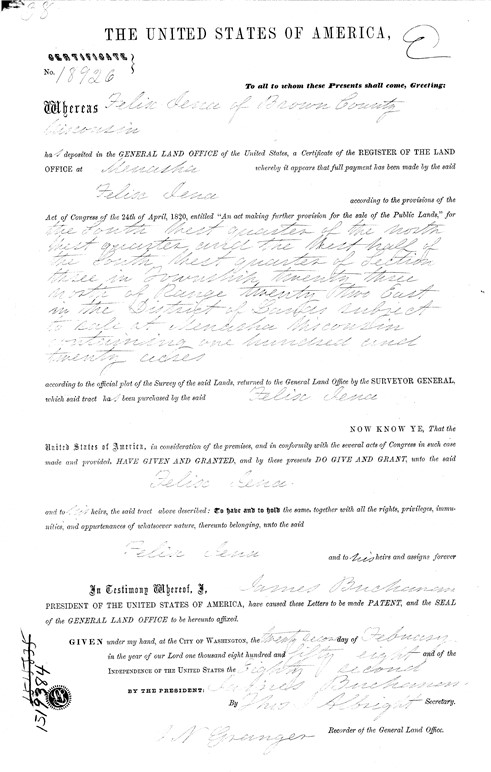 38
THE UNITED STATES OF AMERICA,
CERTIFICATE
No. 18926
To all to whom these Presents shall come, Greeting:
Whereas Felix Jena of Brown County
Wisconsin
has deposited in the GENERAL LAND OFFICE of the United States, a Certificate of the REGISTER OF THE LAND
OFFICE at Menasha whereby it appears that full payment has been made by the said
Felix Jena
according to the provisions of the
Act of Congress of the 24th of April, 1820, entitled "An act making further provision for the sale of the Public Lands," for
the South West quarter of the North
West quarter, and the West half of
the South West quarter of Section
three in Township twenty three
North of Range twenty two East
in the District of Lands subject
to sale at Menasha Wisconsin
containing one hundred and
twenty acres
according to the official plat of the Survey of the said Lands, returned to the General Land Office by the SURVEYOR GENERAL,
which said tract has been purchased by the said Felix Jena
NOW KNOW YE, That the
United States of America, in consideration of the premises, and in conformity with the several acts of Congress in such case
made and provided, HAVE GIVEN AND GRANTED, and by these presents DO GIVE AND GRANT, unto the said
Felix Jena
and to his heirs, the said tract above described: To have and to hold the same, together with all the rights, privileges, immu-
nities, and appurtenances of whatsoever nature, thereunto belonging, unto the said
Felix Jena
and to his heirs and assigns forever
In Testimony Whereof, I, James Buchanan
PRESIDENT OF THE UNITED STATES OF AMERICA, have caused these Letters to be made PATENT, and the SEAL
of the GENERAL LAND OFFICE to be hereunto affixed.
GIVEN under my hand, at the CITY OF WASHINGTON, the twenty second day of February
in the year of our Lord one thousand eight hundred and fifty eight and of the
INDEPENDENCE OF THE UNITED STATES the Eighty second
BY THE PRESIDENT: James Buchanan
By Albright Secretary.
J N Granger Recorder of the General Land Office.
1519384